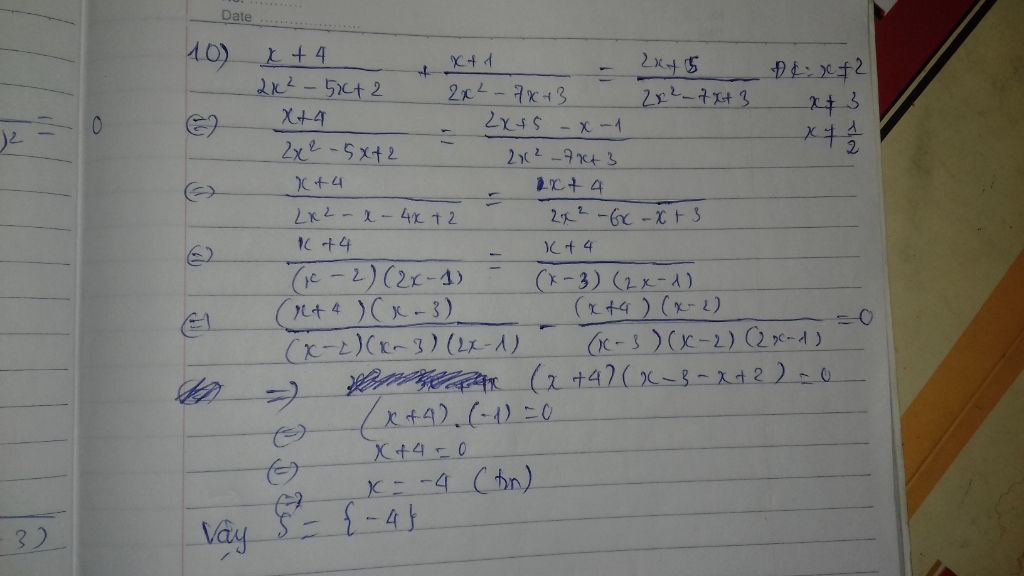 Date
10) x + 4 / 2x² - 5x + 2 + x + 1 / 2x² - 7x + 3 = 2x + 5 / 2x² - 7x + 3 ĐK: x ≠ 2
x ≠ 3
x ≠ 1/2
)² = 0
⇔) x+4 / 2x² - 5x + 2 = 2x + 5 - x - 1 / 2x² - 7x + 3
⇔) x + 4 / 2x² - x - 4x + 2 = x + 4 / 2x² - 6x - x + 3
⇔) x + 4 / (x - 2)(2x - 1) = x + 4 / (x - 3)(2x - 1)
⇔) (x + 4)(x - 3) / (x - 2)(x - 3)(2x - 1) - (x + 4)(x - 2) / (x - 3)(x - 2)(2x - 1) = 0
⇒) (x + 4)(x - 3 - x + 2) = 0
⇔) (x + 4).(-1) = 0
⇔) x + 4 = 0
⇔) x = -4 (tn)
Vậy S = {-4}
3)